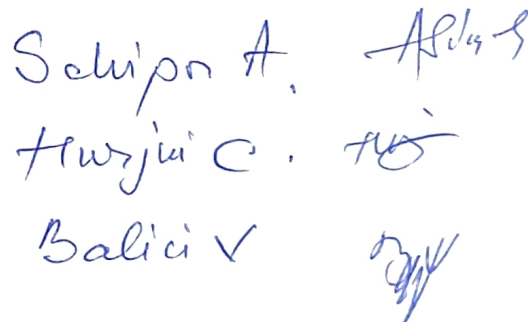 Schipor A.
Hurjui C.
Balici V